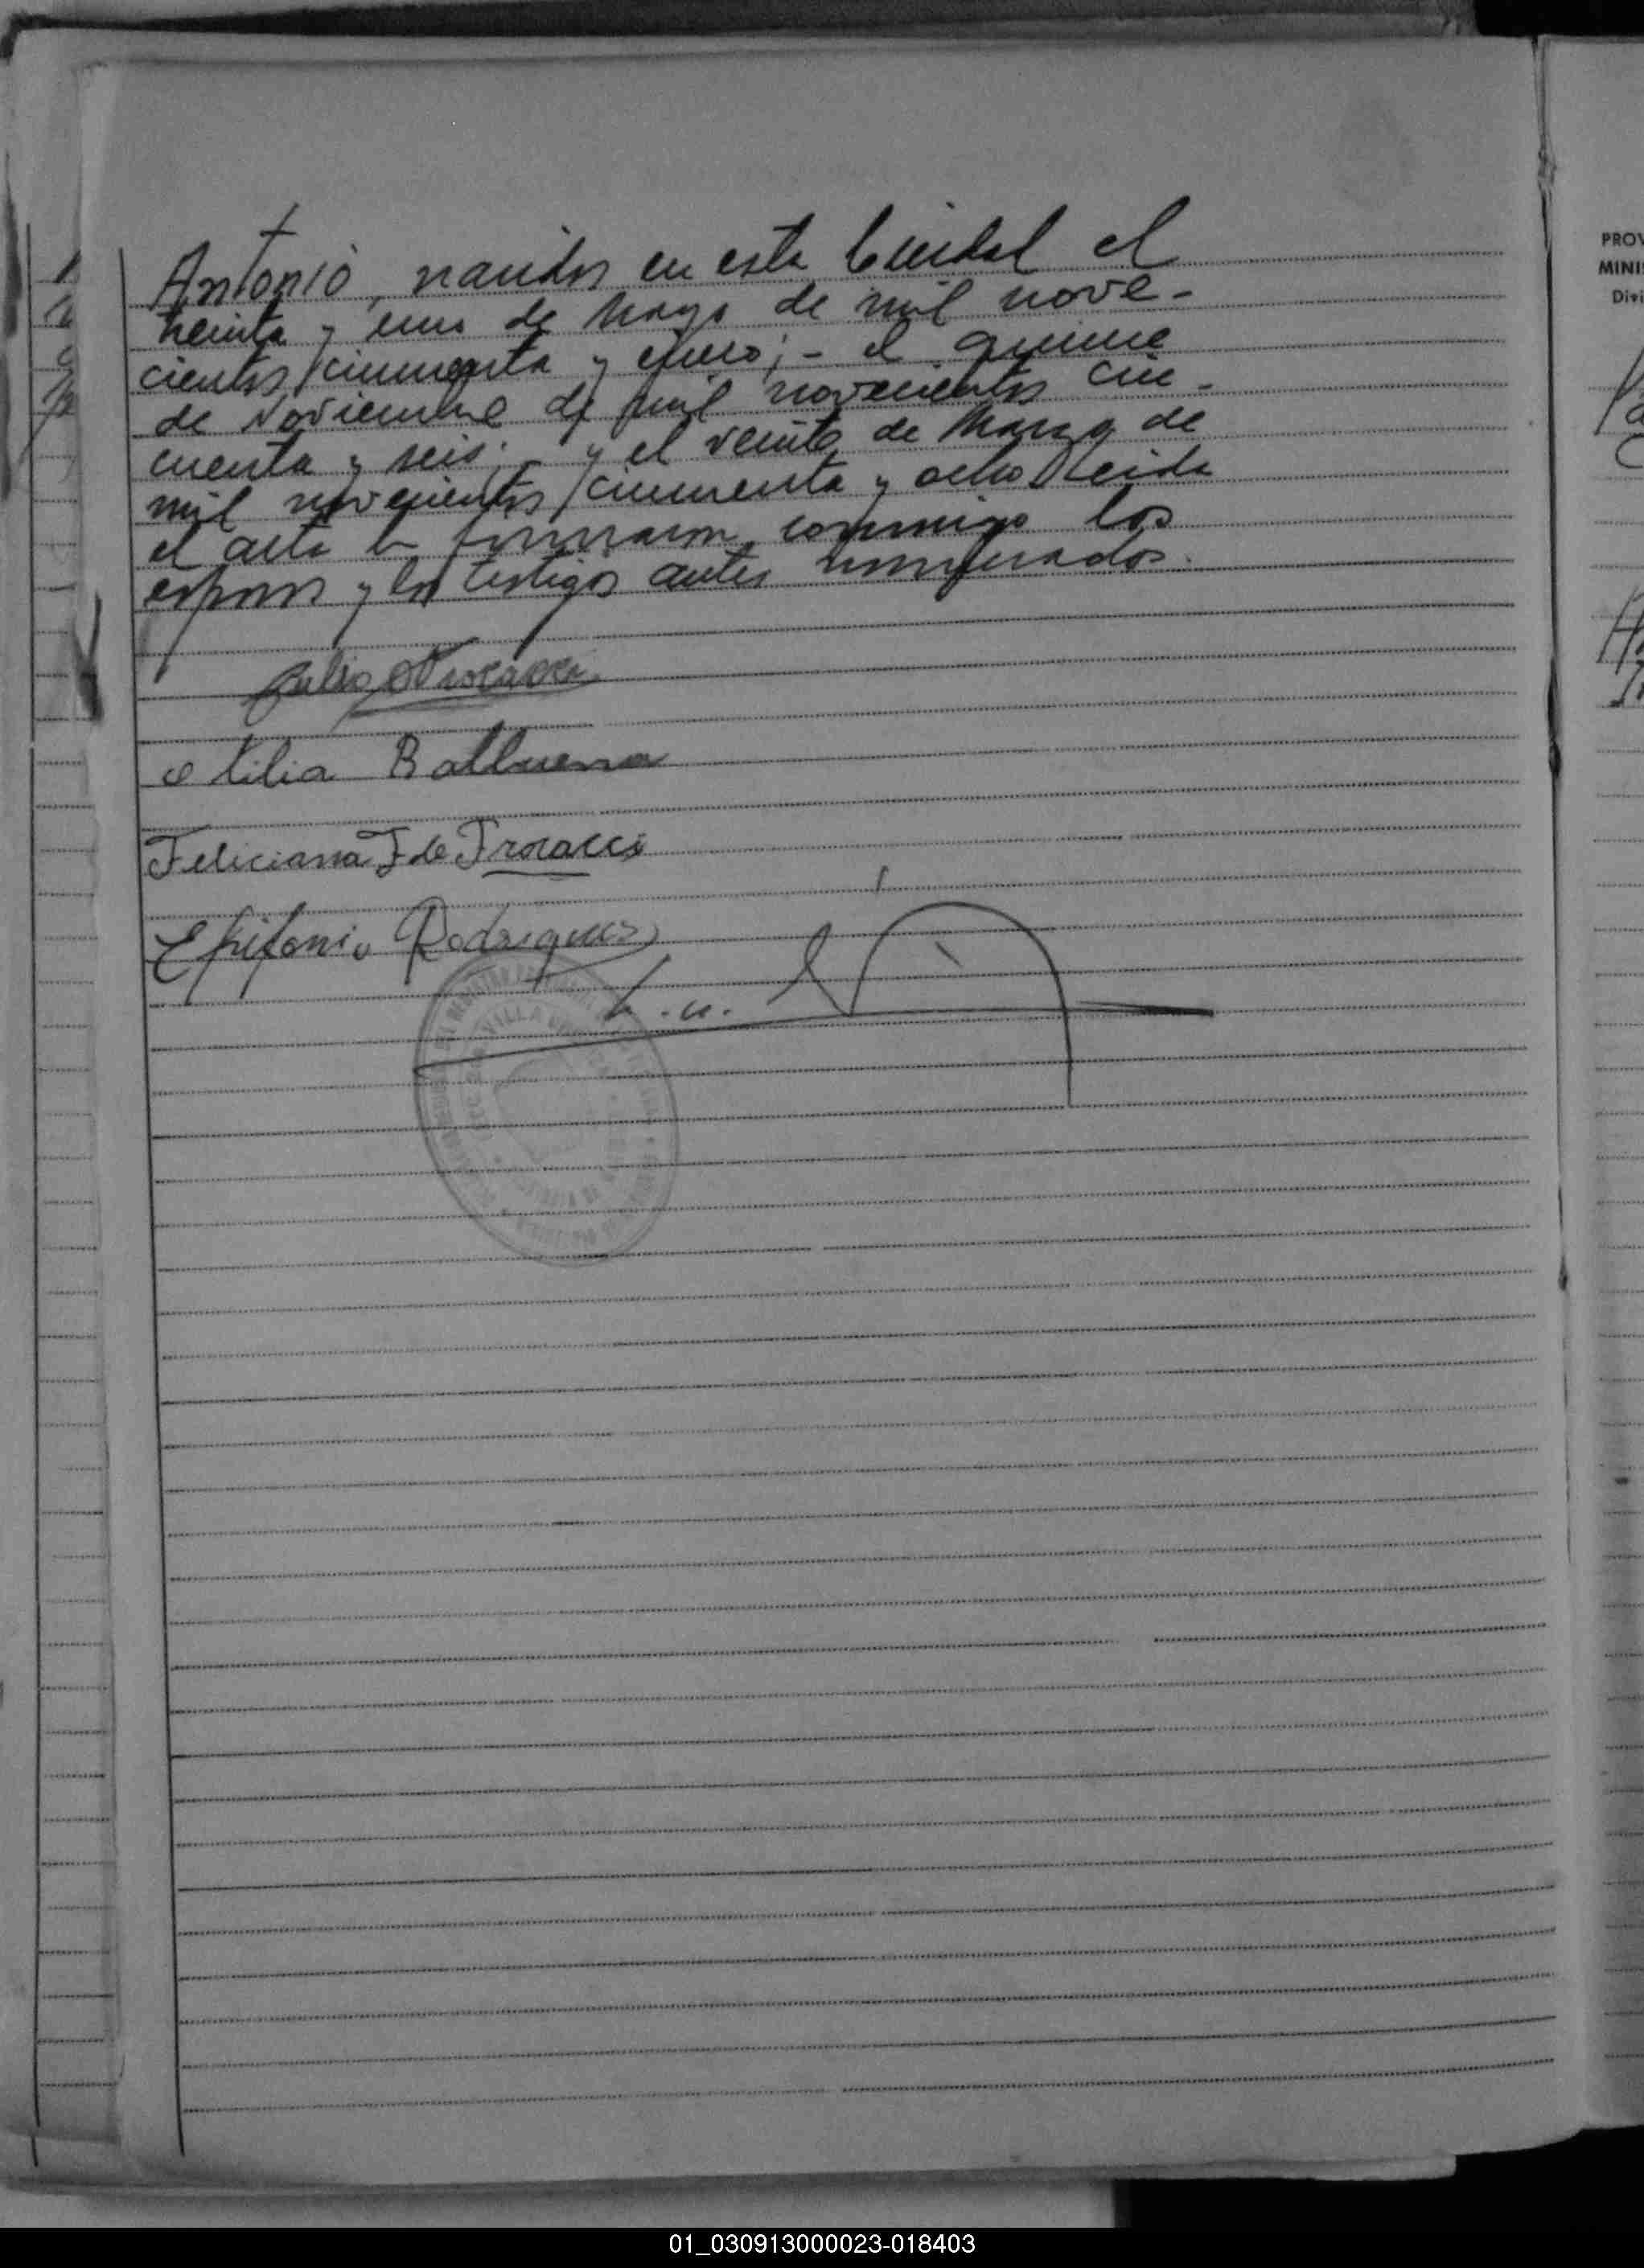 Antonio, nacidos en esta Ciudad el
treinta y uno de Mayo de mil nove-
cientos cincuenta y cinco; - el quince
de Noviembre de mil novecientos cin-
cuenta y seis; - y el veinte de Marzo de
mil novecientos cincuenta y ocho. Leida
el acta la firmaron conmigo los
esposos y los testigos antes nombrados.
Julio Procacci
Otilia Balbuena
Feliciana F de Procacci
Epifanio Rodriguez
VILLA
PROV
MINIS
Divi
01_030913000023-018403